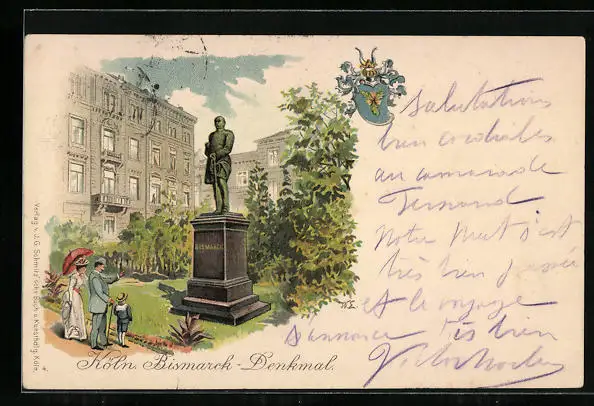 Salutations
bien cordiales
au camarade
Fernand
Notre nuit s'est
très bien passée
et le voyage
s'annonce très bien
BISMARCK
Köln. Bismarck-Denkmal.
Verlag v. J. G. Schmitz'sche Buch- u. Kunsthdlg. Köln.